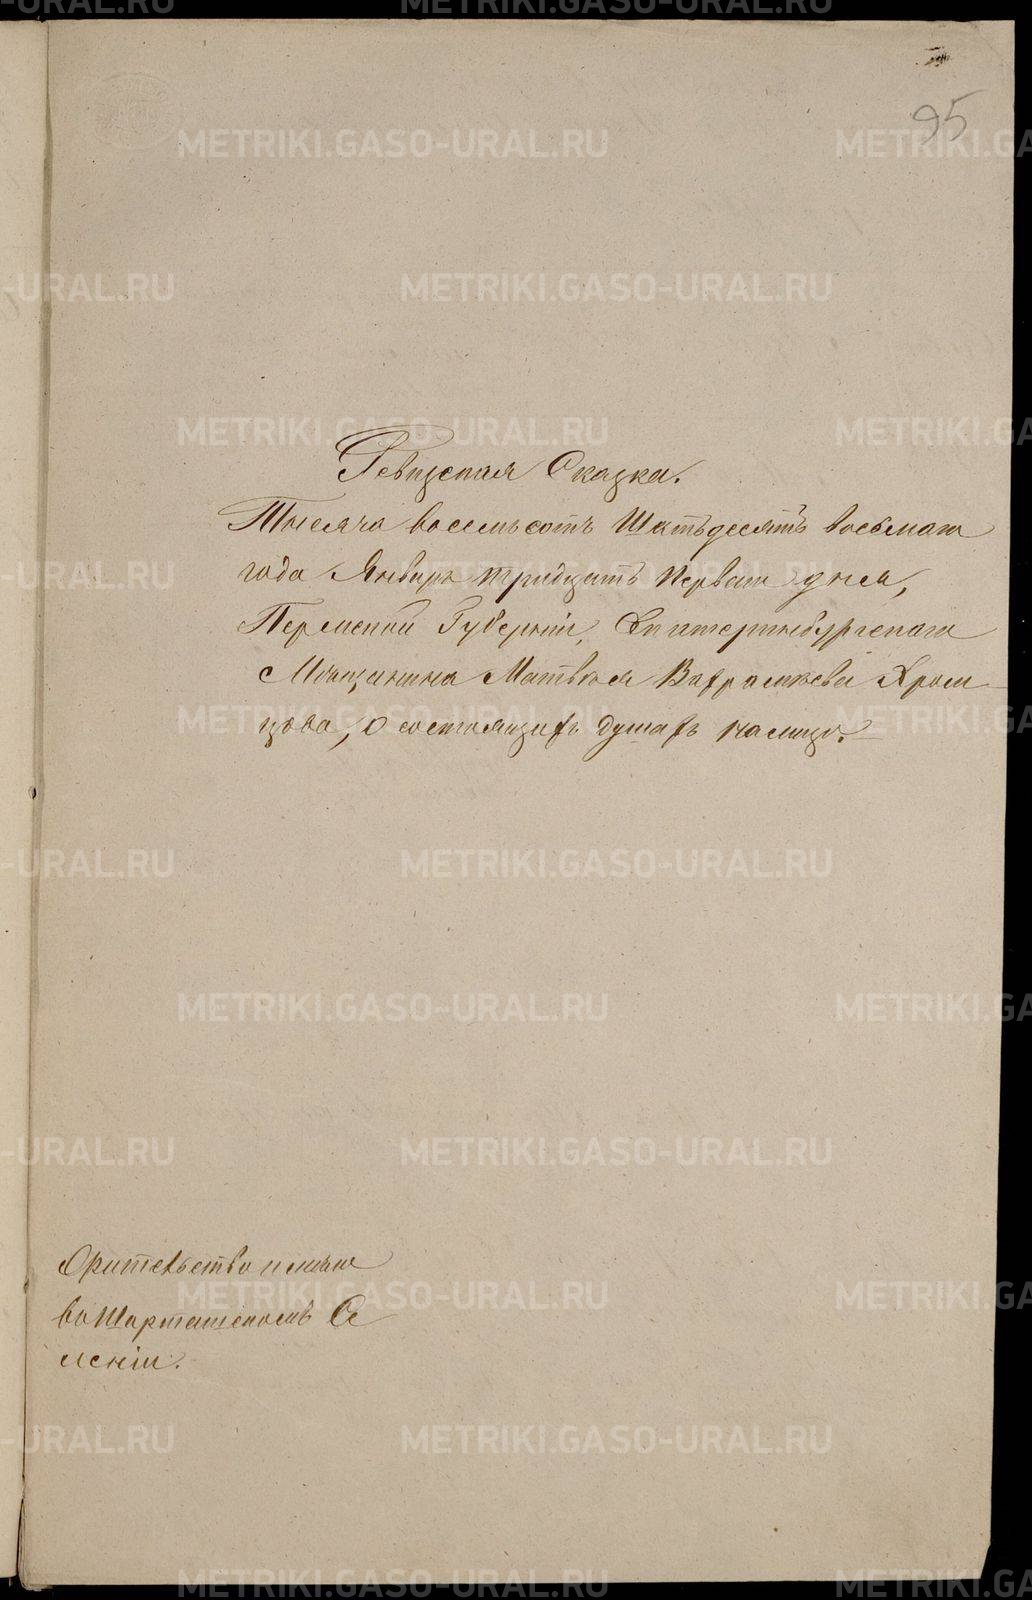 95
Ревизская Сказка.
Тысяча восемьсотъ Шестьдесятъ восьмаго
года Января тридцать перваго дня,
Пермской Губерніи, Екатеринбургскаго
Мѣщанина Матвѣя Варфоломѣева Хром
цова, о состоящихъ душахъ налицо.
Жительство имѣю
во Шарташскомъ Се
леніи.
METRIKI.GASO-URAL.RU